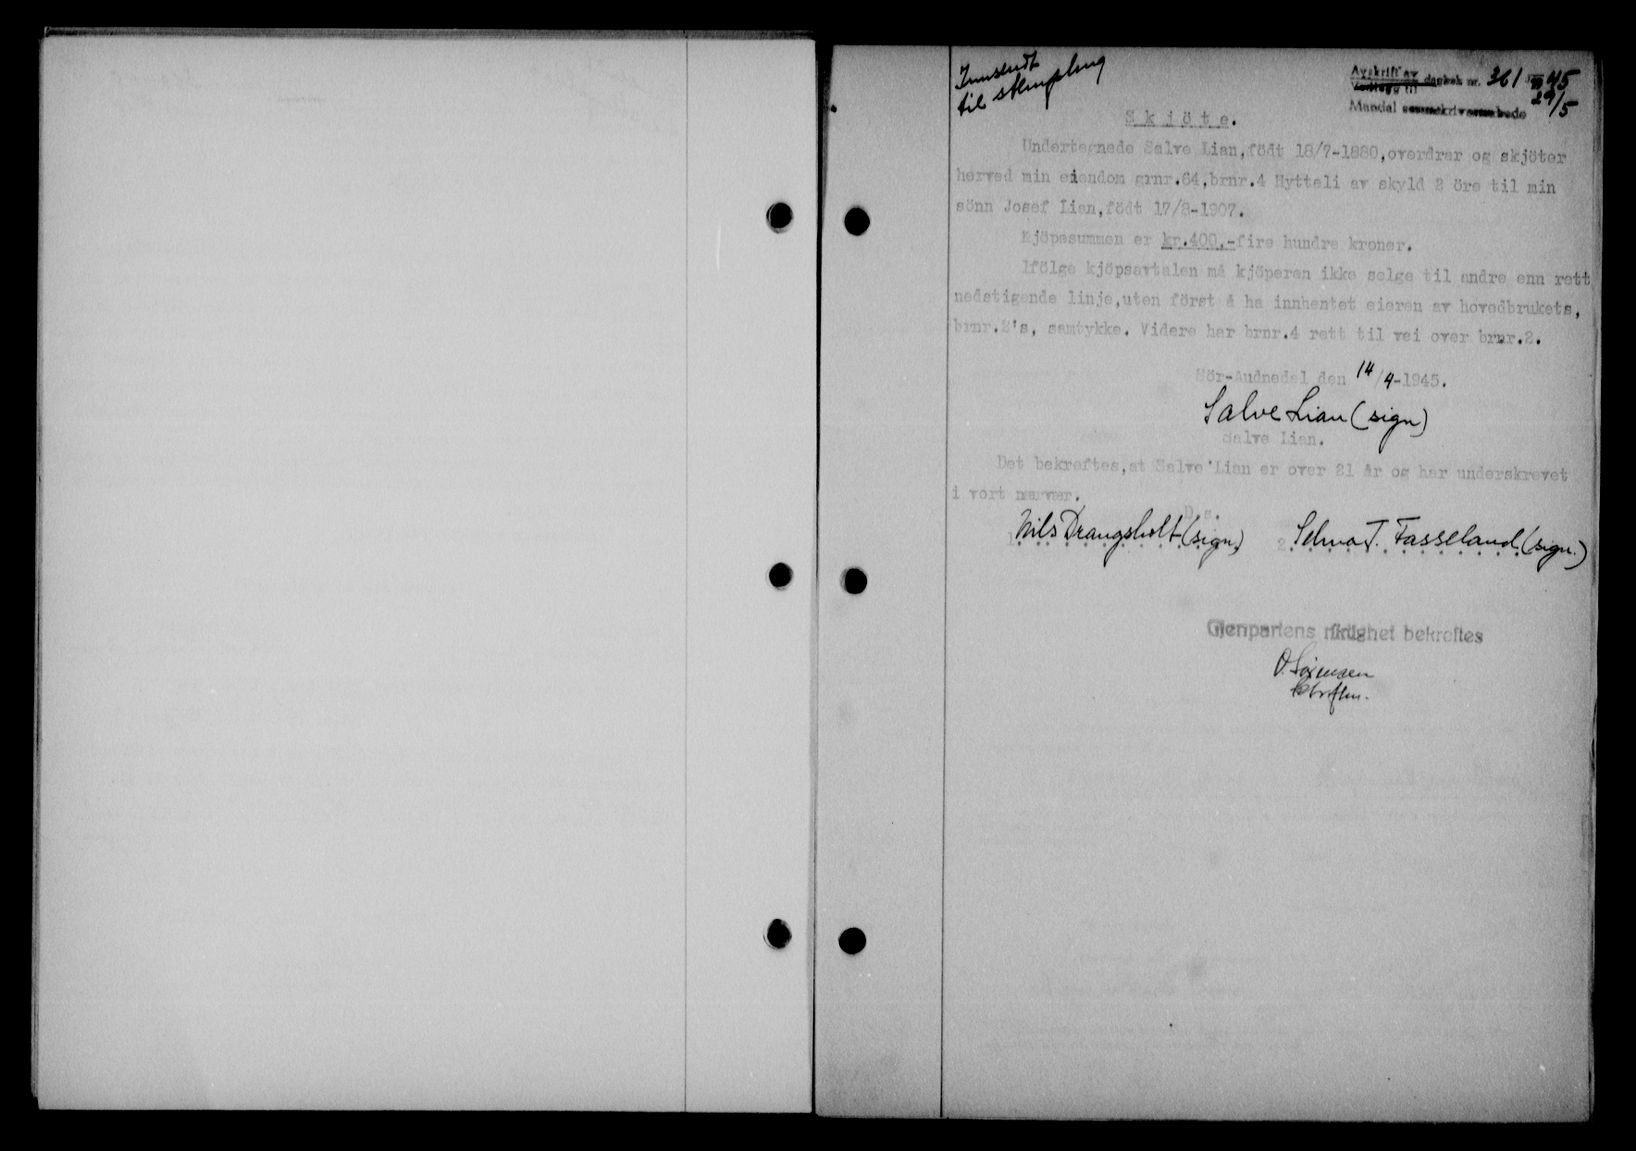 Innsendt
til stempling
Avskrift av dagbok nr. 361 1945
Vedlegg til 29/5
Mandal sorenskriverembede
Skjöte.
Undertegnede Salve Lian,födt 18/7-1880,overdrar og skjöter
herved min eiendom grnr.64,brnr.4 Hytteli av skyld 2 öre til min
sönn Josef Lian,födt 17/8-1907.
Kjöpesummen er kr.400.-fire hundre kroner.
Ifölge kjöpsavtalen må kjöperen ikke selge til andre enn rett
nedstigende linje,uten först å ha innhentet eieren av hovedbrukets,
brnr.2's, samtykke. Videre har brnr.4 rett til vei over brnr.2.
Sör-Audnedal den 14/4-1945.
Salve Lian (sign)
Salve Lian.
Det bekreftes,at Salve Lian er over 21 år og har underskrevet
i vort nærvær.
D.s.
1. Nils Drangsholt (sign) 2. Selma T. Fasseland (sign.)
Gjenpartens riktighet bekreftes
O. Sörensen